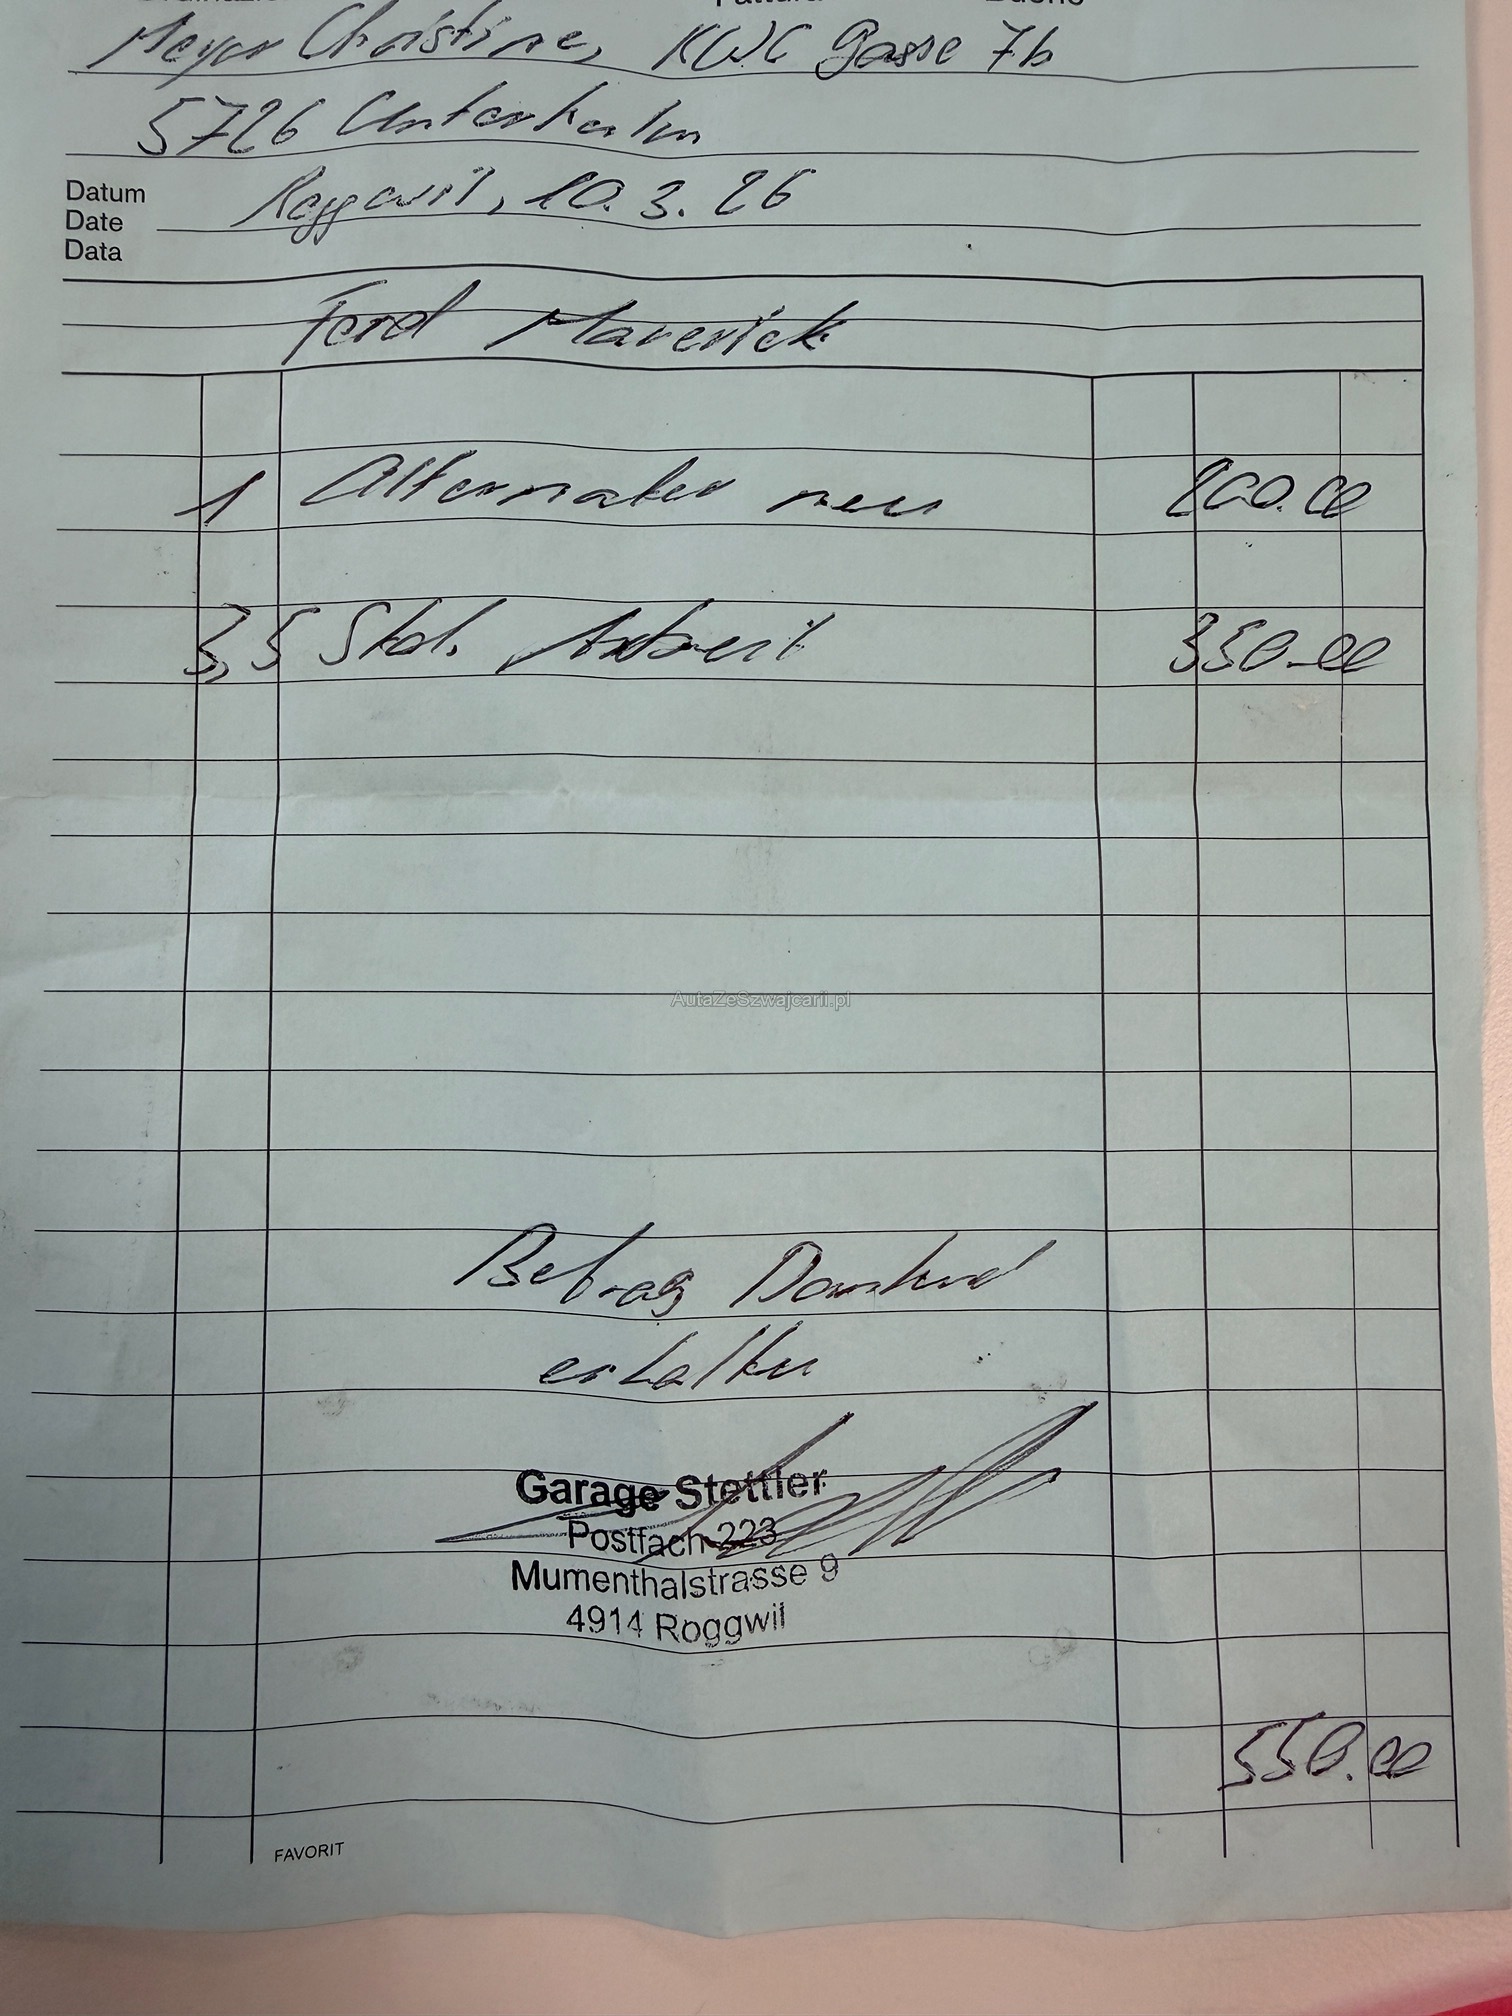 Meyer Christine, KWC Gasse 7b
5726 Unterkulm
Datum Roggwil, 10.3.26
Date
Data
Ford Maverick
1 Alternator neu 200.00
3,5 Std. Arbeit 350.00
AutaZeSzwajcarii.pl
Betrag Dankend
erhalten
Garage Stettler
Postfach 223
Mumenthalstrasse 9
4914 Roggwil
550.00
FAVORIT